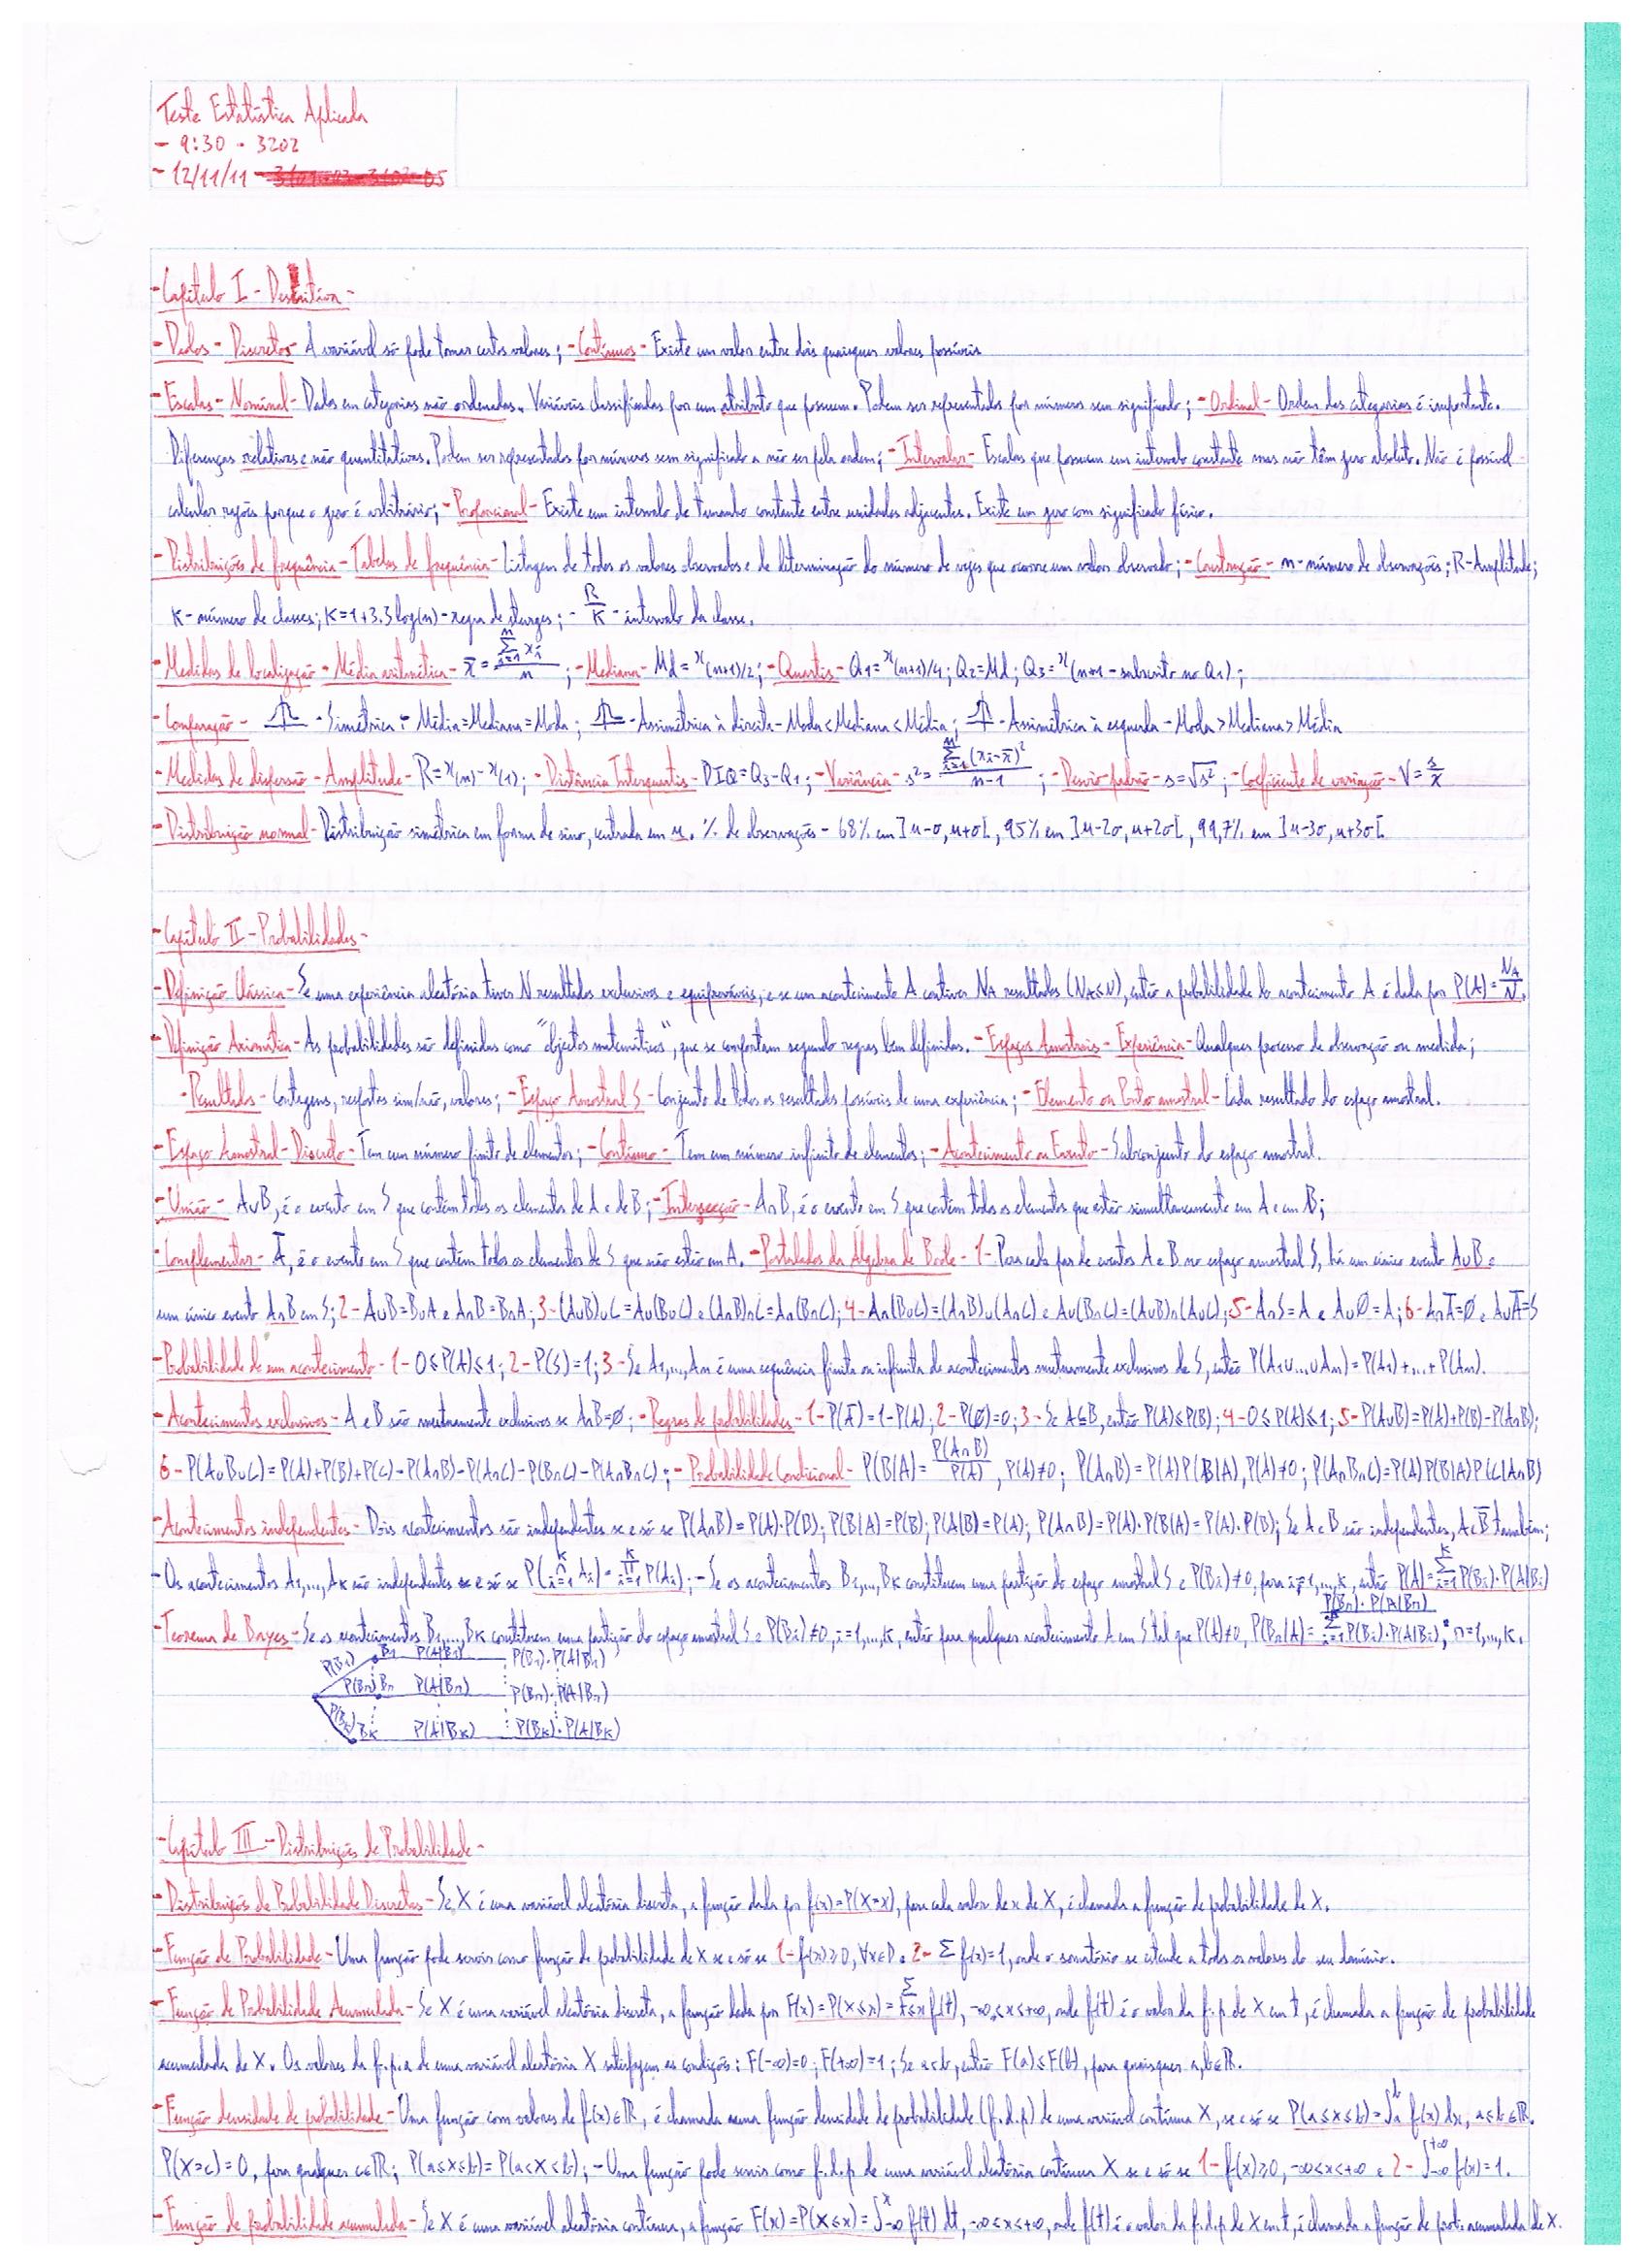 Teste Estatística Aplicada
- 9:30 - 3202
- 12/11/11 -
- Capítulo I - Descritiva -
- Dados - Discretos - A variável só pode tomar certos valores; - Contínuos - Existe um valor entre dois quaisquer valores possíveis
- Escalas - Nominal - Dados em categorias não ordenadas. Variáveis classificadas por um atributo que possuem. Podem ser representados por números sem significado; - Ordinal - Ordem das categorias é importante.
Diferenças relativas e não quantitativas. Podem ser representados por números sem significado a não ser pela ordem; - Intervalar - Escalas que possuem um intervalo constante mas não têm zero absoluto. Não é possível
calcular razões porque o zero é arbitrário; - Proporcional - Existe um intervalo de tamanho constante entre unidades adjacentes. Existe um zero com significado físico.
- Distribuições de frequência - Tabelas de frequência - Listagem de todos os valores observados e de determinação do número de vezes que ocorre um valor observado; - Construção - n - número de observações; R - Amplitude;
K - número de classes; K = 1+3.3 log(n) - regra de sturges; - R/K - intervalo da classe.
- Medidas de localização - Média aritmética - x̄ = Σ(i=1→n) xi / n; - Mediana - Md = x(n+1)/2; - Quartis - Q1 = x(n+1)/4; Q2 = Md; Q3 = x(n+1 - subscrito no Q1);
- Comparação - - Simétrica - Média = Mediana = Moda; - Assimétrica à direita - Moda < Mediana < Média; - Assimétrica à esquerda - Moda > Mediana > Média
- Medidas de dispersão - Amplitude - R = x(n) - x(1); - Distância Interquartis - DIQ = Q3 - Q1; - Variância - s² = Σ(i=1→n) (xi - x̄)² / n-1; - Desvio-padrão - s = √s²; - Coeficiente de variação - V = s/x̄
- Distribuição normal - Distribuição simétrica em forma de sino, centrada em μ. % de observações - 68% em ]μ-σ, μ+σ[, 95% em ]μ-2σ, μ+2σ[, 99,7% em ]μ-3σ, μ+3σ[
- Capítulo II - Probabilidades -
- Definição Clássica - Se uma experiência aleatória tiver N resultados exclusivos e equiprováveis, e se um acontecimento A contiver NA resultados (NA≤N), então a probabilidade do acontecimento A é dada por P(A) = NA/N.
- Definição Axiomática - As probabilidades são definidas como "objectos matemáticos", que se comportam segundo regras bem definidas. - Espaços Amostrais - Experiência - Qualquer processo de observação ou medida;
- Resultados - Contagens, respostas sim/não, valores; - Espaço Amostral S - Conjunto de todos os resultados possíveis de uma experiência; - Elemento ou Ponto amostral - Cada resultado do espaço amostral.
- Espaço Amostral - Discreto - Tem um número finito de elementos; - Contínuo - Tem um número infinito de elementos; - Acontecimento ou Evento - Subconjunto do espaço amostral.
- União - A∪B, é o evento em S que contém todos os elementos de A e de B; - Intersecção - A∩B, é o evento em S que contém todos os elementos que estão simultaneamente em A e em B;
- Complementar - Ā, é o evento em S que contém todos os elementos de S que não estão em A. - Postulados da Álgebra de Boole - 1 - Para cada par de eventos A e B no espaço amostral S, há um único evento A∪B e
um único evento A∩B em S; 2 - A∪B=B∪A e A∩B=B∩A; 3 - (A∪B)∪C=A∪(B∪C) e (A∩B)∩C=A∩(B∩C); 4 - A∩(B∪C)=(A∩B)∪(A∩C) e A∪(B∩C)=(A∪B)∩(A∪C); 5 - A∩S=A e A∪Ø=A; 6 - A∩Ā=Ø e A∪Ā=S
- Probabilidade de um acontecimento - 1 - 0≤P(A)≤1; 2 - P(S)=1; 3 - Se A1,...,An é uma sequência finita ou infinita de acontecimentos mutuamente exclusivos de S, então P(A1∪...∪An)=P(A1)+...+P(An).
- Acontecimentos exclusivos - A e B são mutuamente exclusivos se A∩B=Ø; - Regras de probabilidades - 1 - P(Ā)=1-P(A); 2 - P(Ø)=0; 3 - Se A⊆B, então P(A)≤P(B); 4 - 0≤P(A)≤1; 5 - P(A∪B)=P(A)+P(B)-P(A∩B);
6 - P(A∪B∪C)=P(A)+P(B)+P(C)-P(A∩B)-P(A∩C)-P(B∩C)-P(A∩B∩C); - Probabilidade Condicional - P(B|A) = P(A∩B)/P(A), P(A)≠0; P(A∩B)=P(A)P(B|A), P(A)≠0; P(A∩B∩C)=P(A)P(B|A)P(C|A∩B)
- Acontecimentos independentes - Dois acontecimentos são independentes se e só se P(A∩B)=P(A)·P(B); P(B|A)=P(B); P(A|B)=P(A); P(A∩B)=P(A)·P(B|A)=P(A)·P(B); Se A e B são independentes, A e B̄ também;
- Os acontecimentos A1,...,AK são independentes se e só se P(∩(i=1→K) Ai) = Π(i=1→K) P(Ai); - Se os acontecimentos B1,...,BK constituem uma partição do espaço amostral S e P(Bi)≠0, para i=1,...,K, então P(A)=Σ(i=1→K) P(Bi)·P(A|Bi)
- Teorema de Bayes - Se os acontecimentos B1,...,BK constituem uma partição do espaço amostral S e P(Bi)≠0, i=1,...,K, então para qualquer acontecimento A em S tal que P(A)≠0, P(Br|A) = P(Br)·P(A|Br) / Σ(i=1→K) P(Bi)·P(A|Bi); r=1,...,K.
P(B1) B1 P(A|B1) P(B1)·P(A|B1)
P(Br) Br P(A|Br) P(Br)·P(A|Br)
P(BK) BK P(A|BK) P(BK)·P(A|BK)
- Capítulo III - Distribuições de Probabilidade -
- Distribuições de Probabilidade Discretas - Se X é uma variável aleatória discreta, a função dada por f(x)=P(X=x), para cada valor de x de X, é chamada a função de probabilidade de X.
- Função de Probabilidade - Uma função pode servir como função de probabilidade de X se e só se 1 - f(x)≥0, ∀x∈D e 2 - Σ f(x)=1, onde o somatório se estende a todos os valores do seu domínio.
- Função de Probabilidade Acumulada - Se X é uma variável aleatória discreta, a função dada por F(x)=P(X≤x)=Σ(t≤x) f(t), -∞<x<+∞, onde f(t) é o valor da f.p. de X em t, é chamada a função de probabilidade
acumulada de X. Os valores da f.p.a de uma variável aleatória X satisfazem as condições: F(-∞)=0; F(+∞)=1; Se a<b, então F(a)≤F(b), para quaisquer a,b∈ℝ.
- Função densidade de probabilidade - Uma função com valores de f(x)∈ℝ, é chamada uma função densidade de probabilidade (f.d.p) de uma variável contínua X, se e só se P(a≤x≤b)=∫(a→b) f(x) dx, a≤b∈ℝ.
P(X=c)=0, para qualquer c∈ℝ; P(a≤X≤b)=P(a<X<b); - Uma função pode servir como f.d.p de uma variável aleatória contínua X se e só se 1 - f(x)≥0, -∞<x<+∞ e 2 - ∫(-∞→+∞) f(x)=1.
- Função de probabilidade acumulada - Se X é uma variável aleatória contínua, a função F(x)=P(X≤x)=∫(-∞→x) f(t) dt, -∞<x<+∞, onde f(t) é o valor da f.d.p de X em t, é chamada a função de prob. acumulada de X.